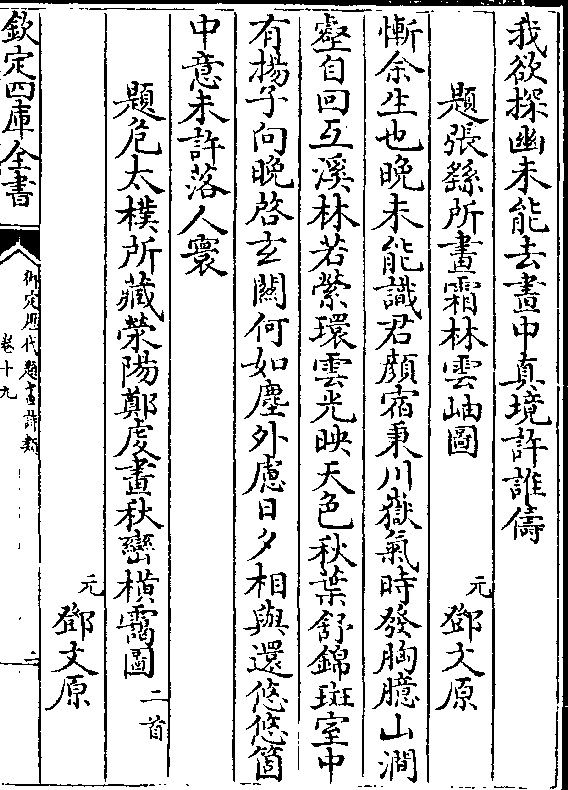 我欲探幽未能去畫中真境許誰儔
題張繇所畫霜林雲岫圖
元 鄧文原
慚余生也晚未能識君顏宿秉川嶽氣時發胸臆山澗
壑自回互溪林若縈環雲光映天色秋葉舒錦斑室中
有揚子向晚啓玄關何如塵外慮日夕相與還悠悠箇
中意未許落人寰
題危太樸所藏榮陽鄭虔畫秋巒橫靄圖 二首
元 鄧文原
欽定四庫全書
御定歷代題畫詩類
卷十九
二